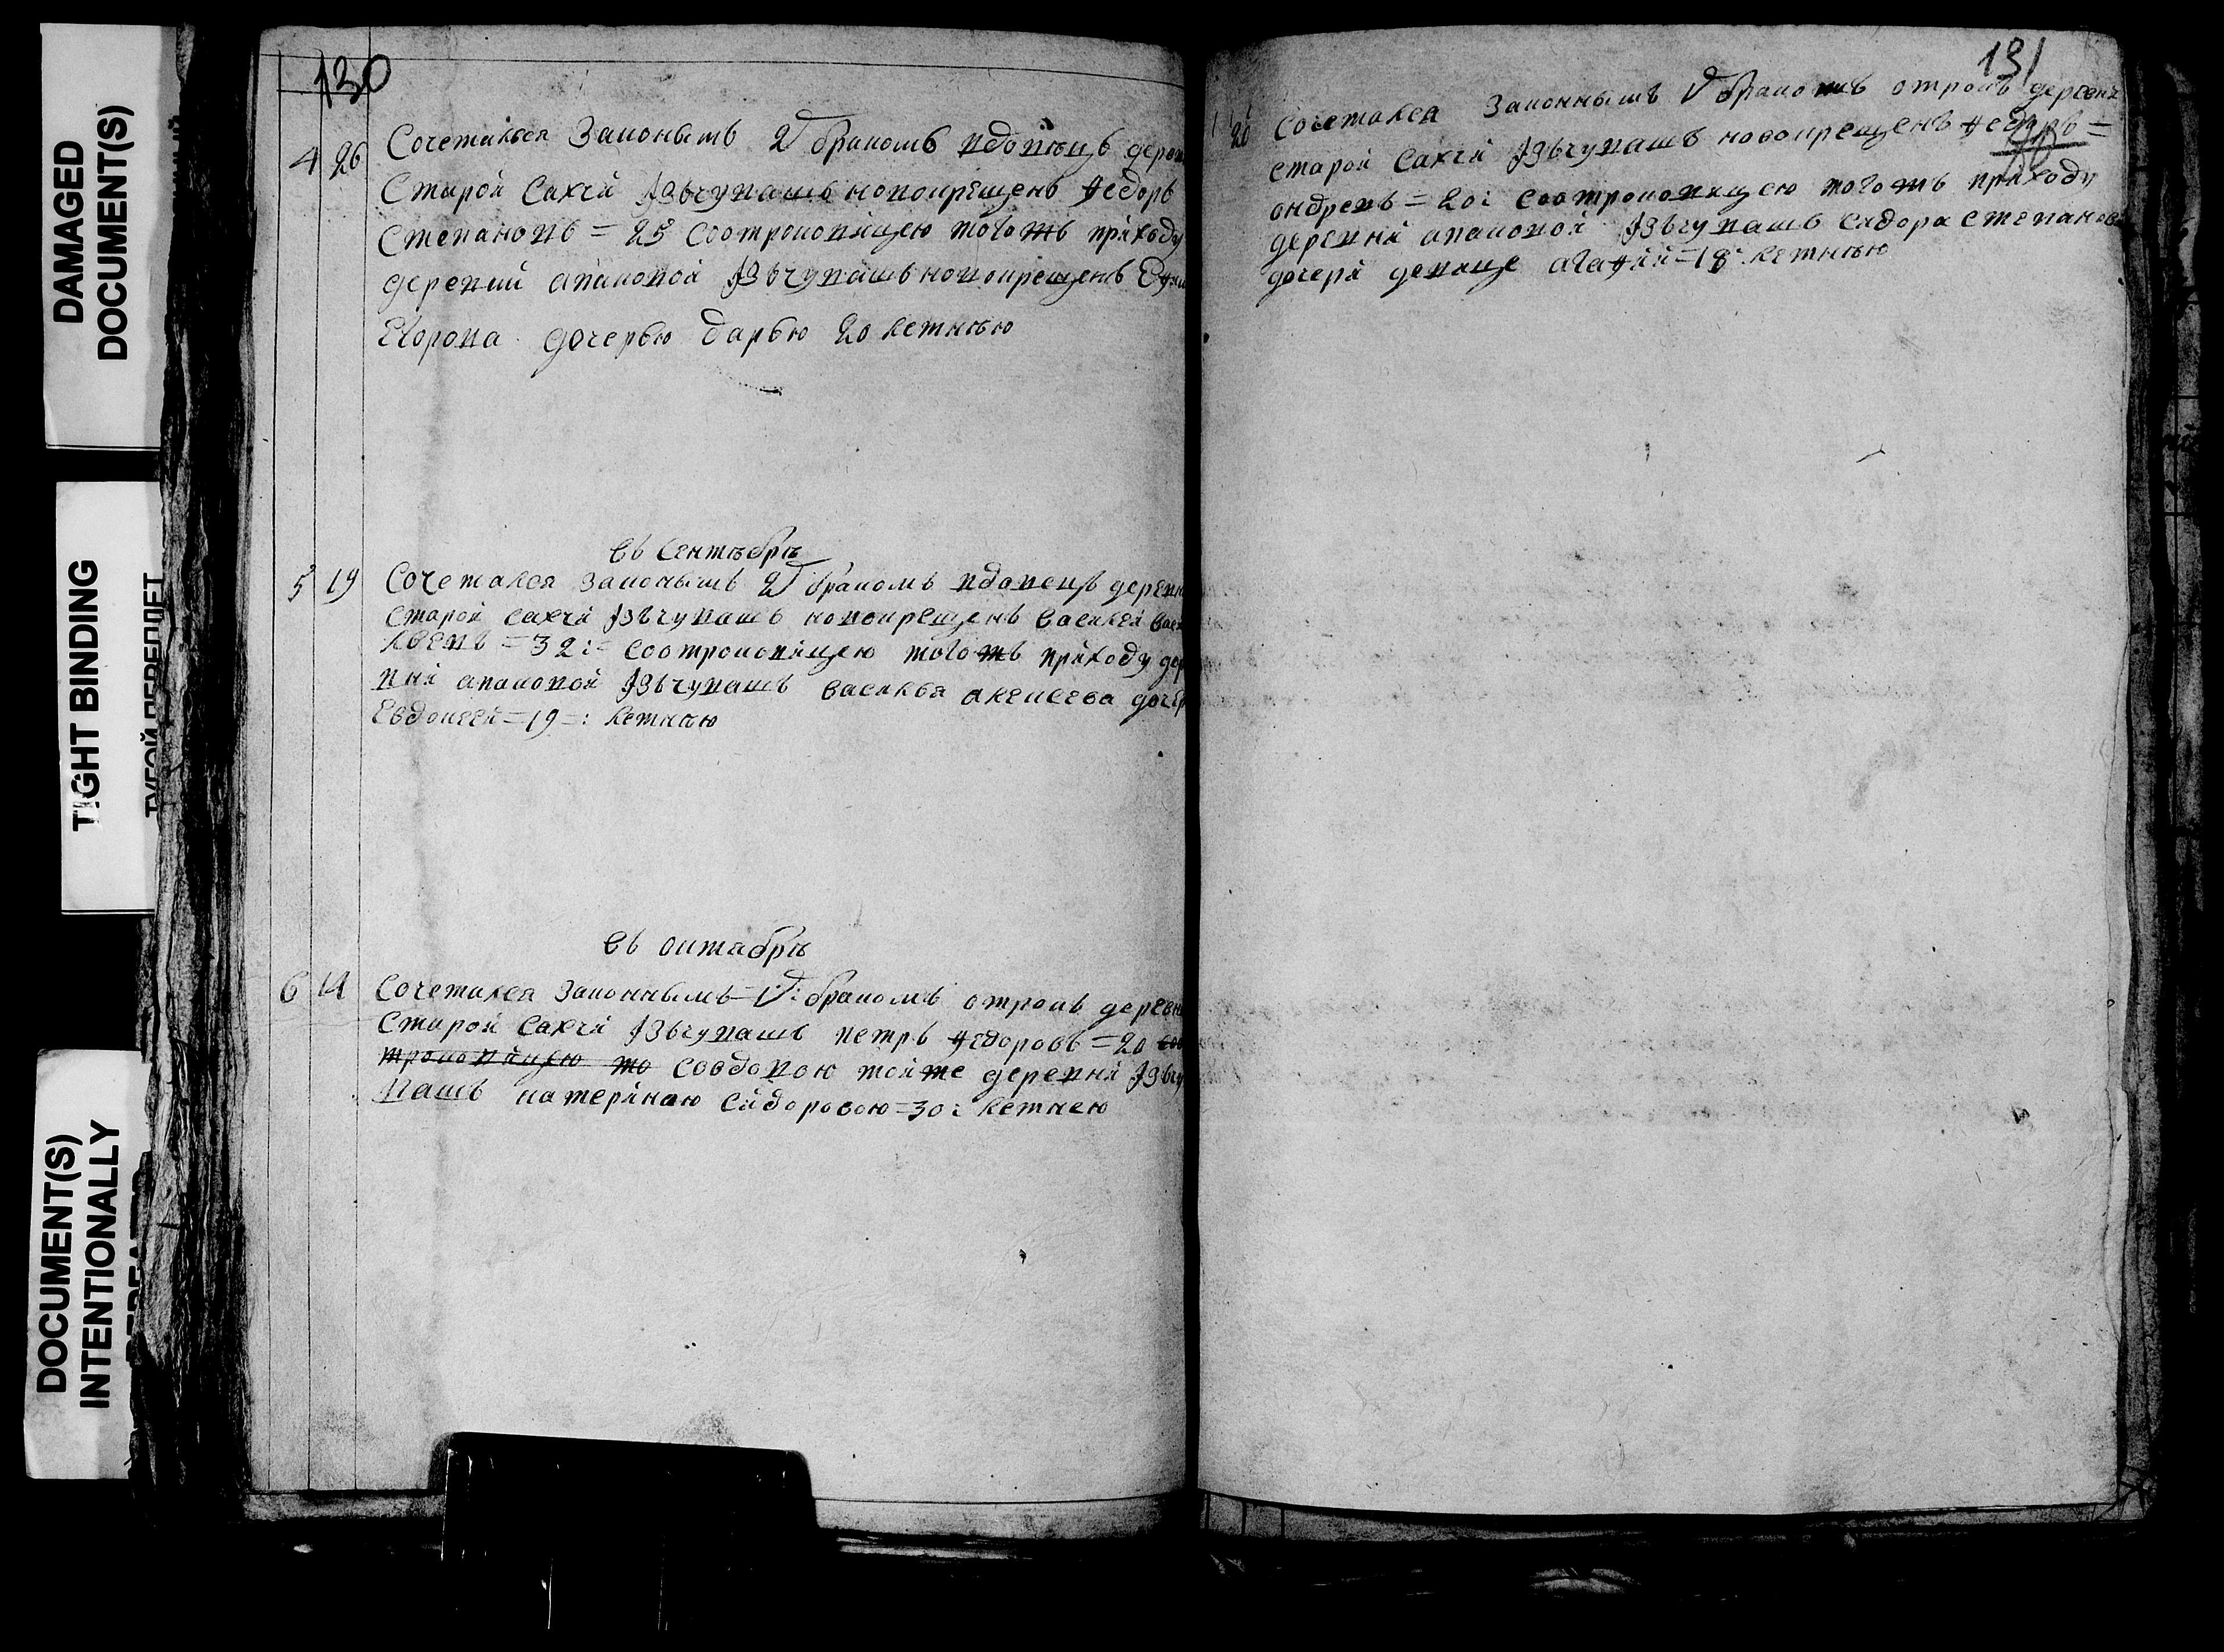 DAMAGED
DOCUMENT(S)
TIGHT BINDING
ТУГОЙ ПЕРЕПЛЕТ
DOCUMENT(S)
INTENTIONALLY
130
4 26 Сочетался Законымъ 2 бракомъ вдовецъ
Старой Сахчи Изъчувашъ новокрещенъ Федоръ
Степановъ = 25 соотроковицею тогожъ приходу
деревни апаковой Изъчувашъ новокрещенъ
Егорова дочерью дарью 20 летнею
въ Сентебрѣ
5 19 Сочетался законымъ 2 бракомъ вдовецъ
старой сахчи Изъчувашъ новокрещенъ василей
= 32 := соотроковицею тогожъ приходу
апаковой Изъчувашъ василья алексеева
Евдокеей = 19 =: летнѣю
въ октябрѣ
6 14 Сочетался законнымъ = 1: бракомъ отрокъ
Старой сахчи Изъчувашъ петръ Федоровъ = 20
троковицею то совдовою тойже деревни
катериною сидоровою = 30: летнею
131
20 Сочетался Законнымъ 1 бракомъ отрокъ
старой сахчи Изъчувашъ новокрещенъ Федоръ =
ондреевъ = 20: соотроковицею тогожъ приходу
деревни апаковой Изъчувашъ сидора
дочери девице агафии = 18: летнѣю